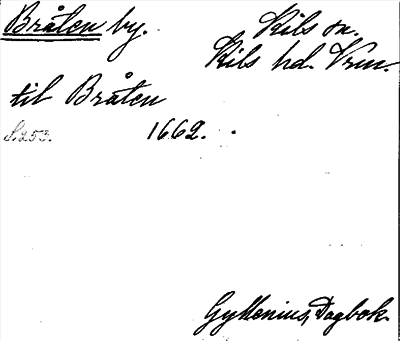 Bråten by. Kils sn.
Kils hd. Vrm.
til Bråten
S. 253. 1662.
Gyllenius, Dagbok.